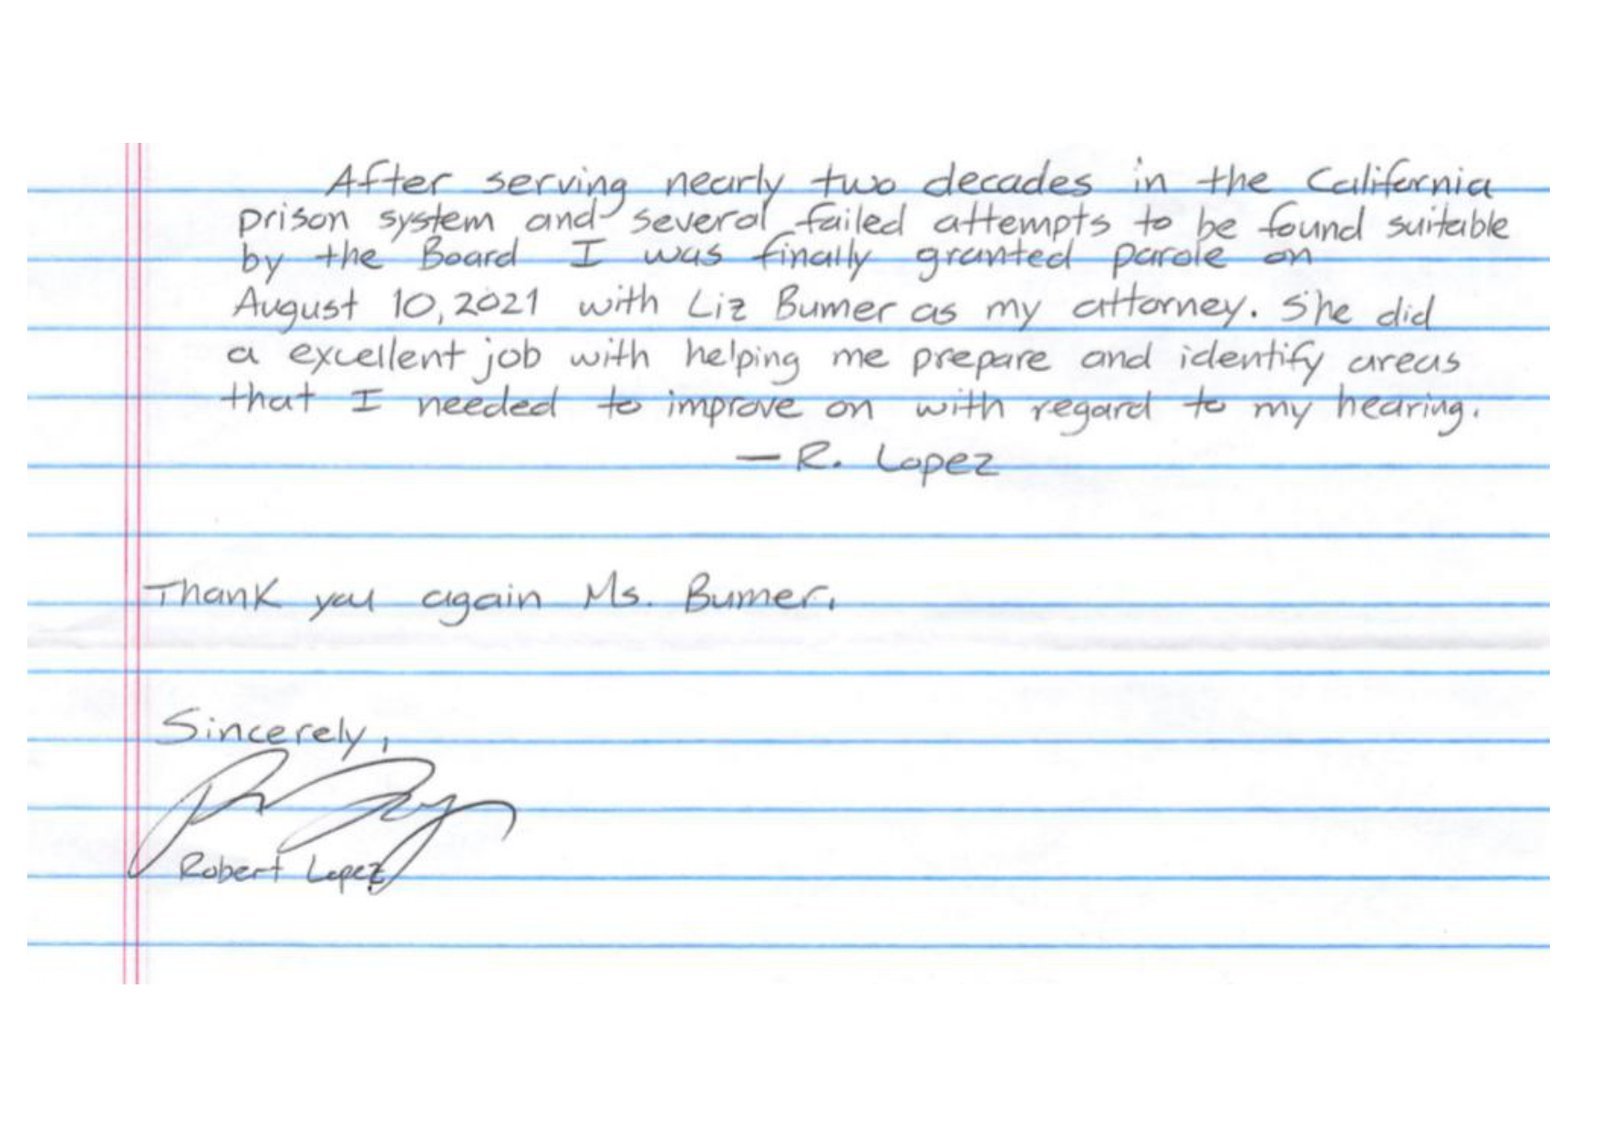 After serving nearly two decades in the California
prison system and several failed attempts to be found suitable
by the Board I was finally granted parole on
August 10, 2021 with Liz Bumer as my attorney. She did
a excellent job with helping me prepare and identify areas
that I needed to improve on with regard to my hearing.
— R. Lopez
Thank you again Ms. Bumer.
Sincerely,
Robert Lopez